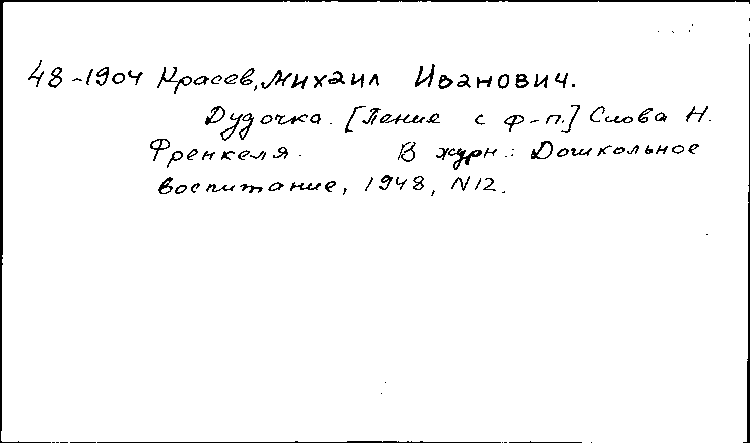 48-1904 Красев, Михаил Иванович.
Дудочка. [Пение с ф-п.] Слова Н.
Френкеля. В журн.: Дошкольное
воспитание, 1948, N12.